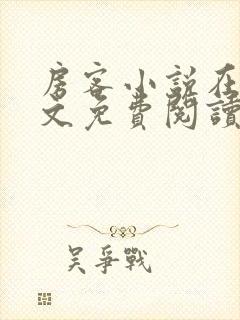 房客小说在
文免費閱讀
吴爭戰